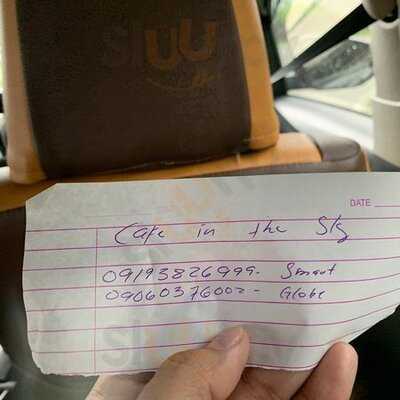 sluu
DATE
Cafe in the Sky
09193826999 - Smart
09060376002 - Globe
sluu